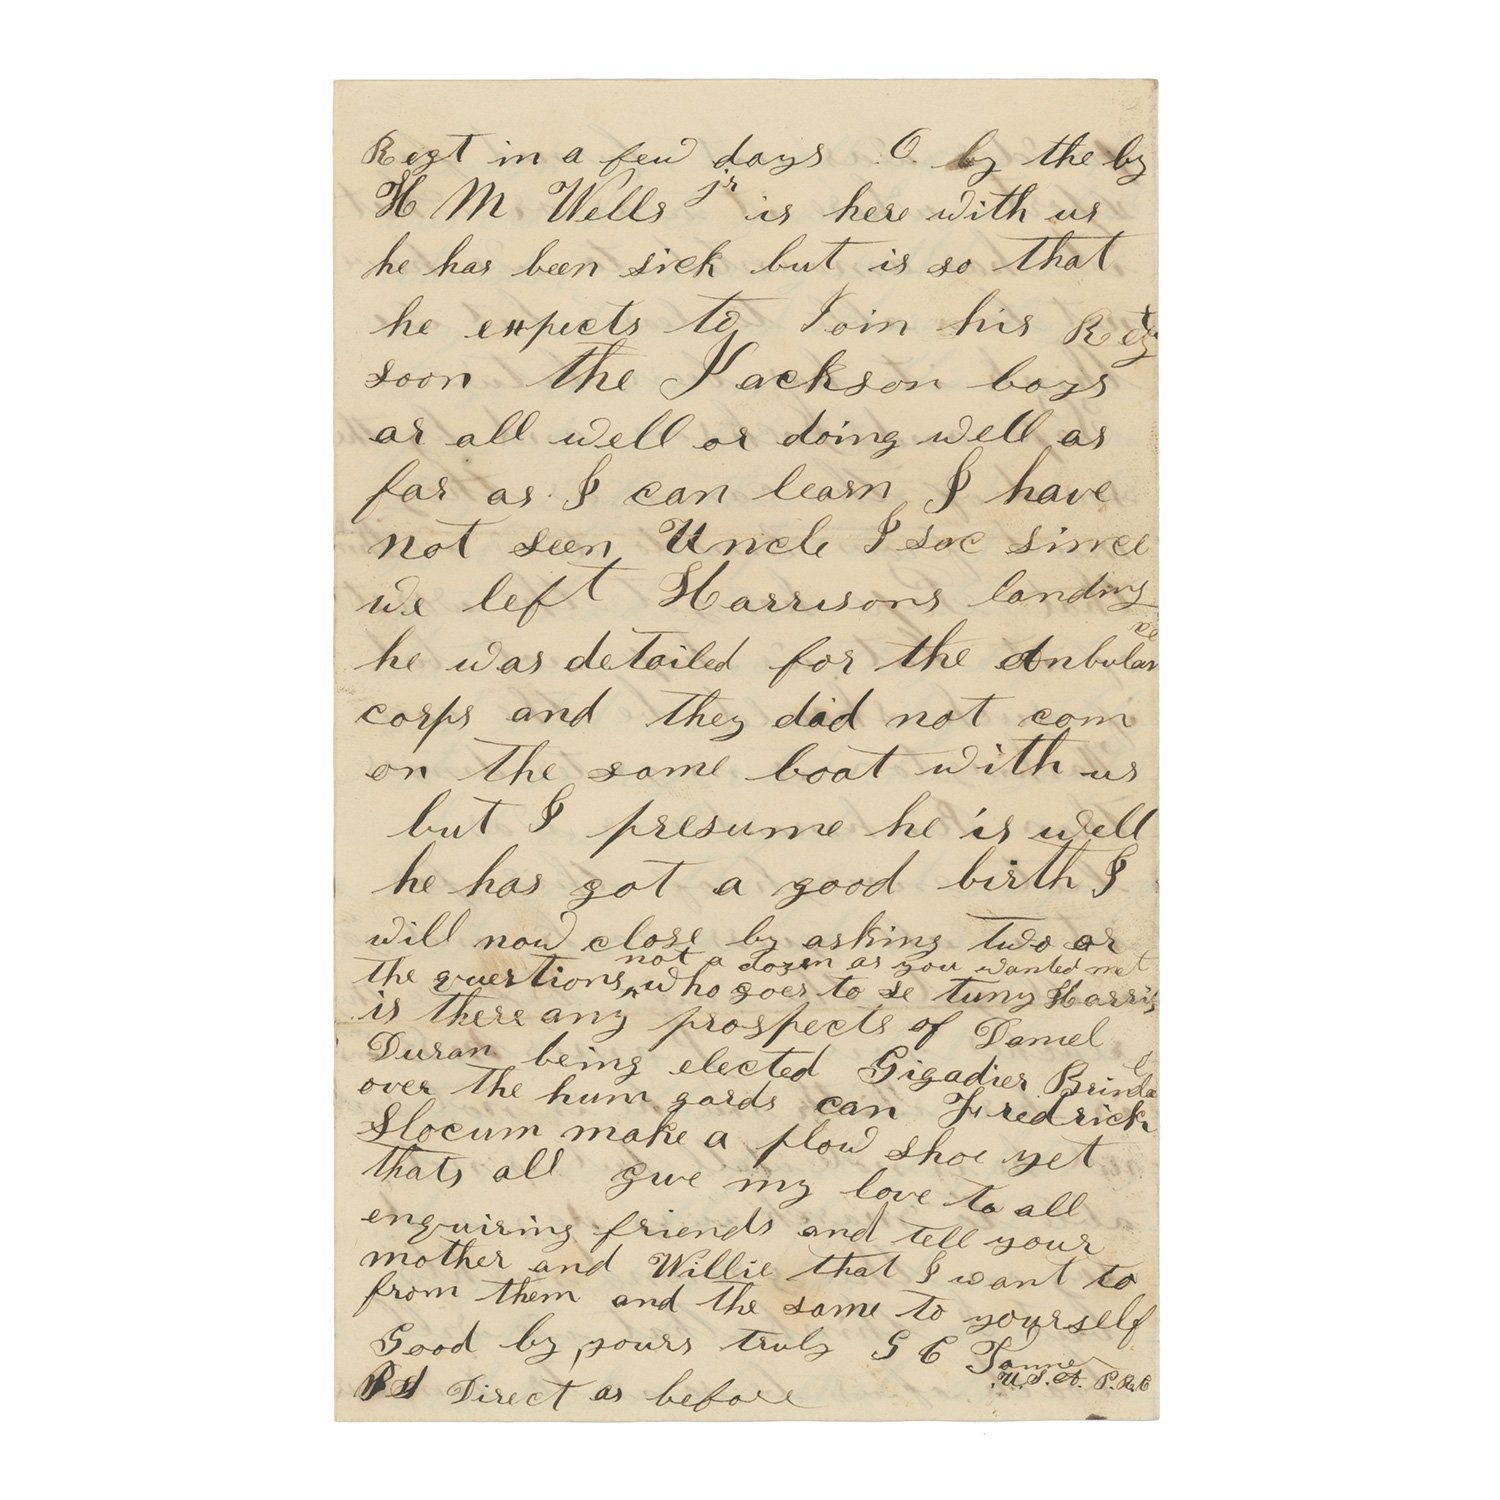 Regt in a few days . O. by the by
H M Wells jr is here with us
he has been sick but is so that
he expects to Join his Regt
soon the Jackson boys
ar all well or doing well as
far as I can learn I have
not seen Uncle Isac since
we left Harrisons landing
he was detailed for the Anbulance
corps and they did not com
on the same boat with us
but I presume he is well
he has got a good birth I
will now close by asking two or
not a dozen as you wanted met
the questions, ^ who goes to se tuny Harris
is there any prospects of Daniel
Duran being elected Gigadier Brindle
over the hum gards can Fredrick
Slocum make a plow shoe yet
thats all give my love to all
enquiring friends and tell your
mother and Willie that I want to
from them and the same to yourself
Good by, yours truly G C Tanner
U.S.A. P.
PS Direct as before